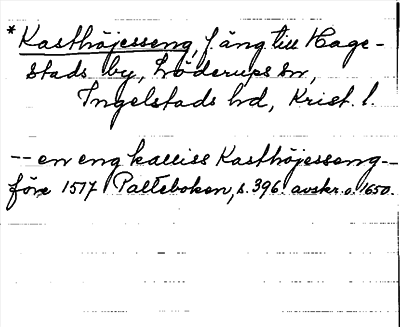 *Kasthöjesseng, f. äng till Hage-
stads by, Löderups sn,
Ingelstads hd, Krist. l.
-- en eng kalliss Kasthöjesseng --
före 1517 Palteboken, s. 396. avskr. o. 1650.